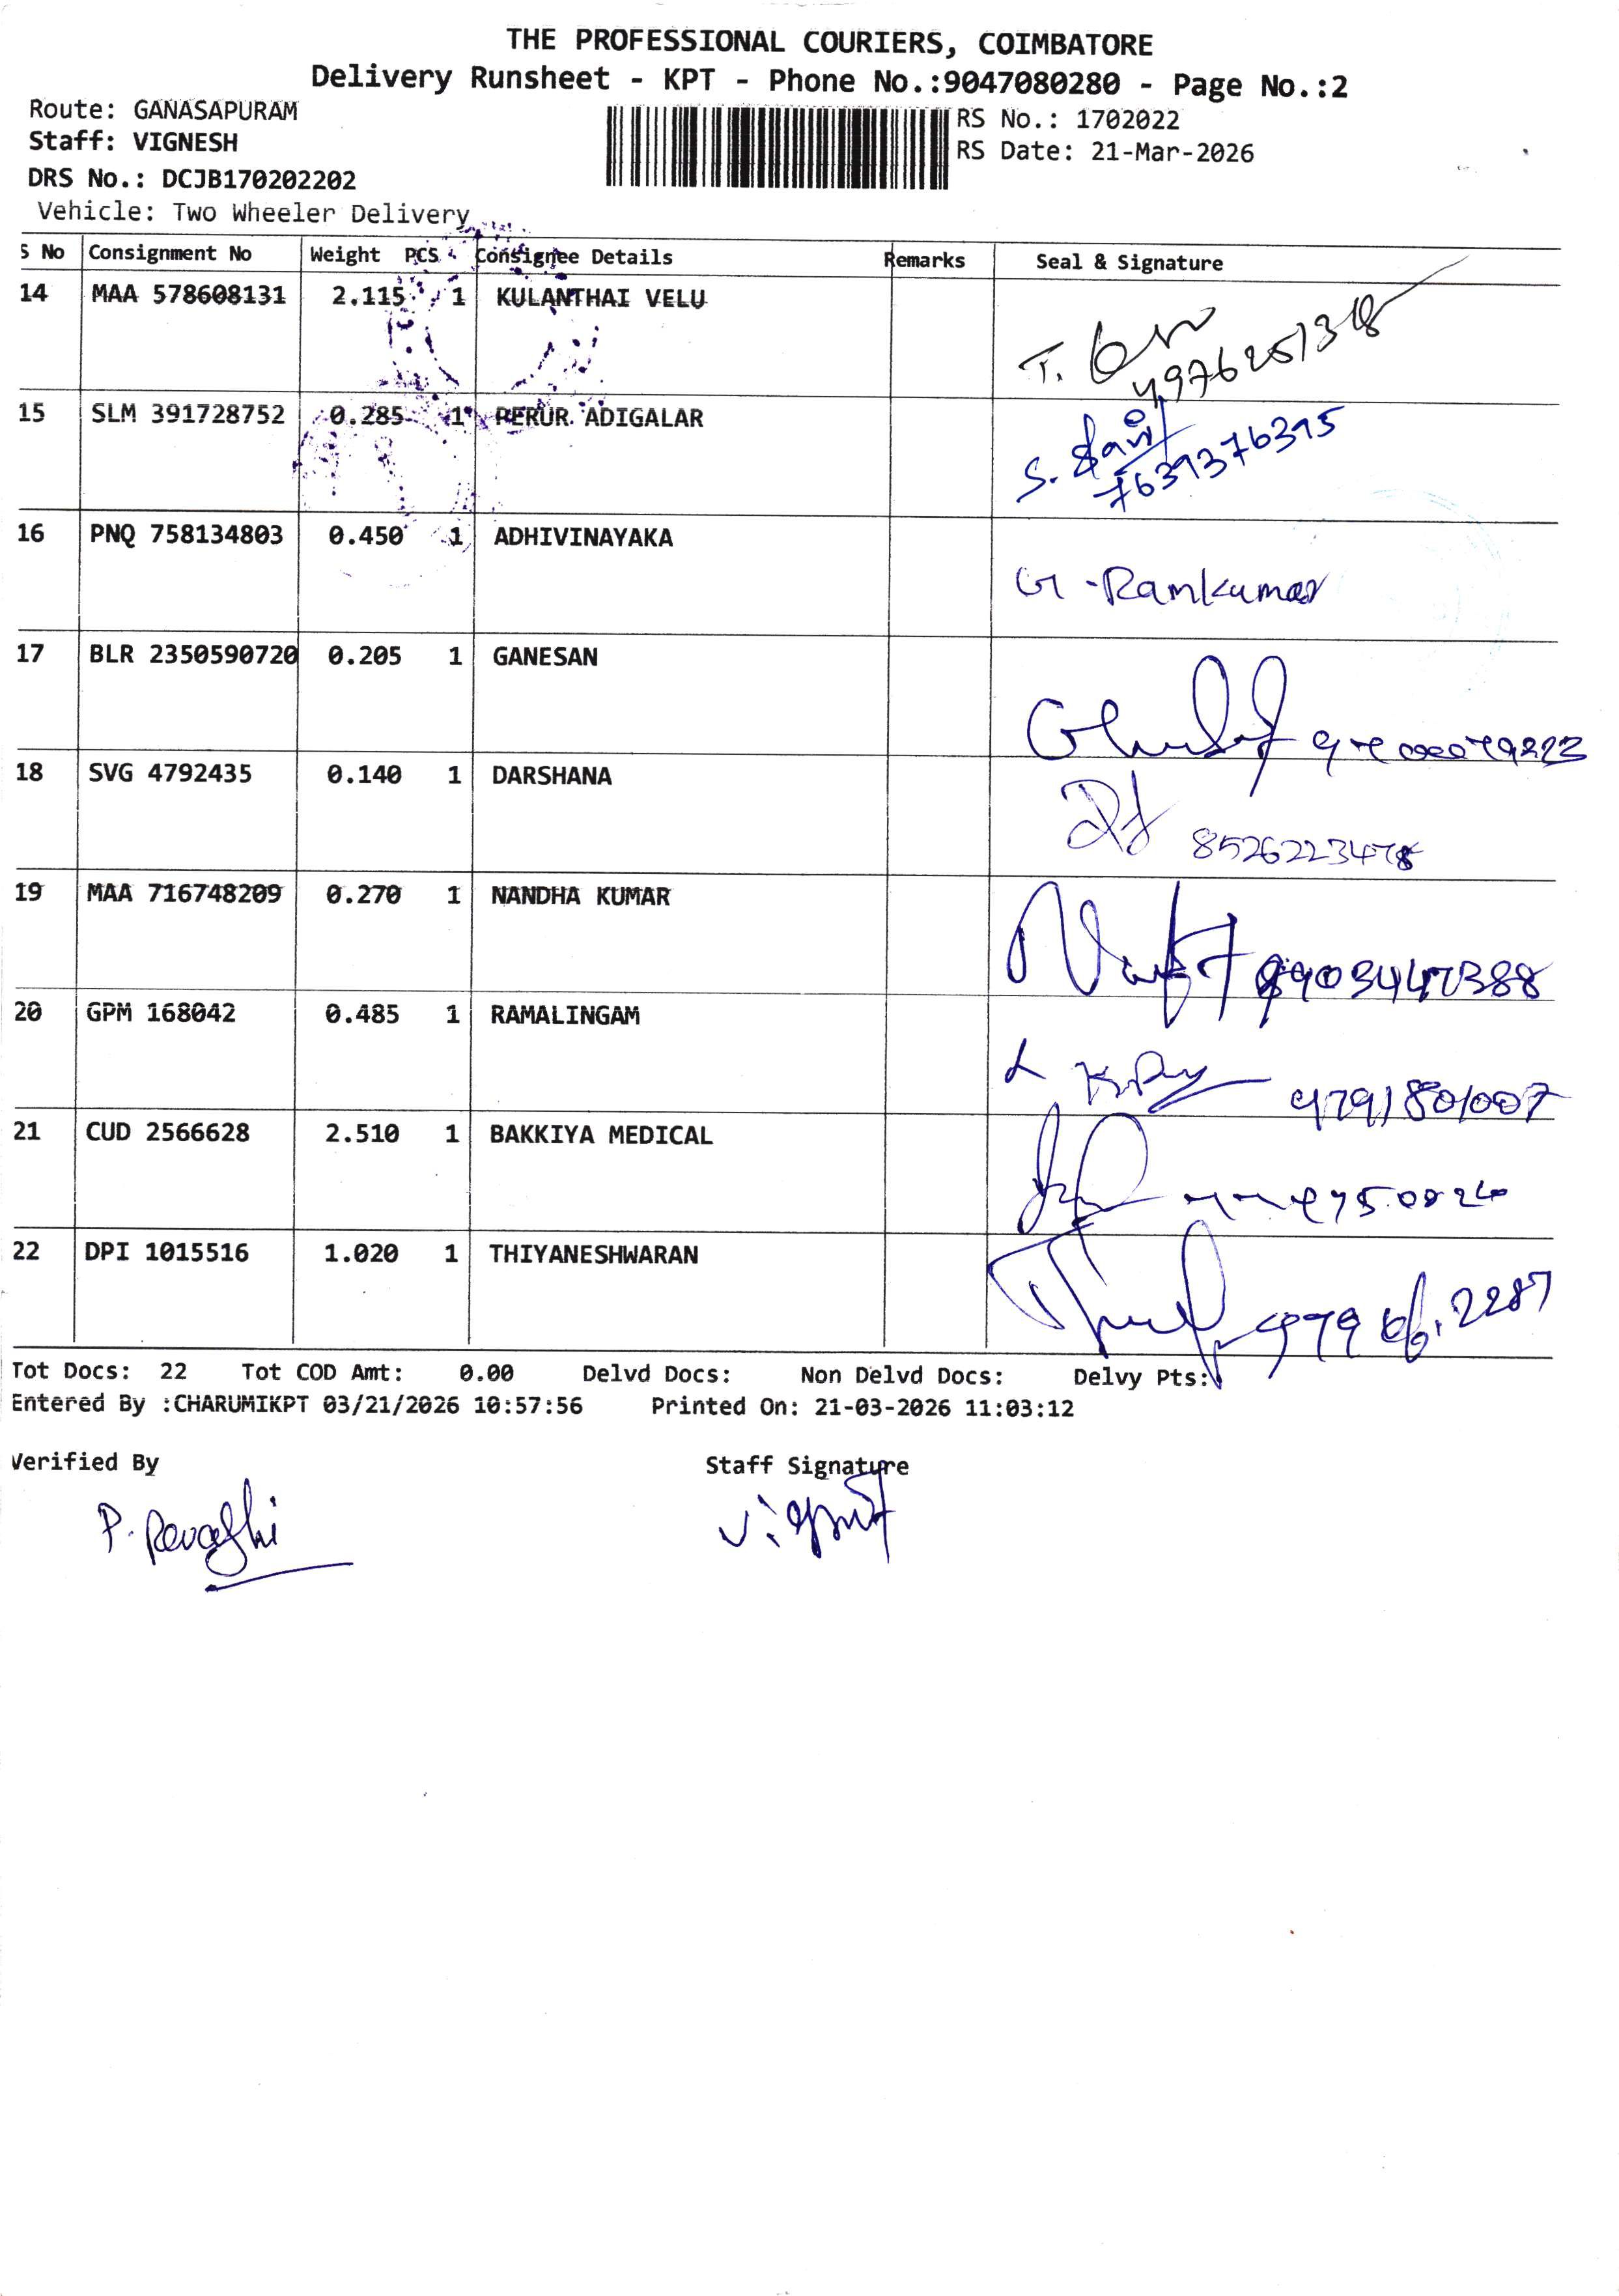 THE PROFESSIONAL COURIERS, COIMBATORE
Delivery Runsheet - KPT - Phone No.:9047080280 - Page No.:2
Route: GANASAPURAM
RS No.: 1702022
Staff: VIGNESH
RS Date: 21-Mar-2026
DRS No.: DCJB170202202
Vehicle: Two Wheeler Delivery
S No Consignment No Weight PCS Consignee Details Remarks Seal & Signature
14 MAA 578608131 2.115 1 KULANTHAI VELU
15 SLM 391728752 0.285 1 PERUR ADIGALAR
7639376395
16 PNQ 758134803 0.450 1 ADHIVINAYAKA
G -Ramkumar
17 BLR 2350590720 0.205 1 GANESAN
18 SVG 4792435 0.140 1 DARSHANA
8526223478
19 MAA 716748209 0.270 1 NANDHA KUMAR
20 GPM 168042 0.485 1 RAMALINGAM
9791801007
21 CUD 2566628 2.510 1 BAKKIYA MEDICAL
22 DPI 1015516 1.020 1 THIYANESHWARAN
Tot Docs: 22 Tot COD Amt: 0.00 Delvd Docs: Non Delvd Docs: Delvy Pts:
Entered By :CHARUMIKPT 03/21/2026 10:57:56 Printed On: 21-03-2026 11:03:12
Verified By Staff Signature
P. Revathi